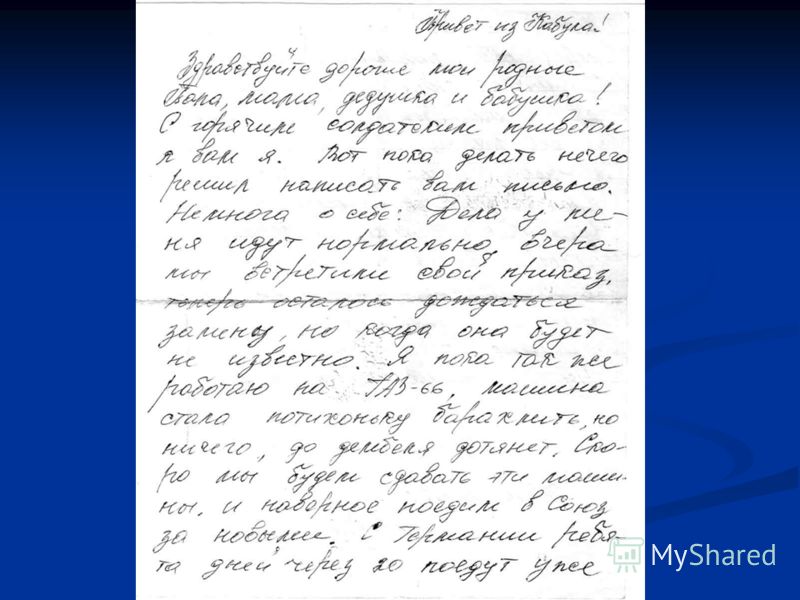 Привет из Кабула!
Здравствуйте дорогие мои родные
Папа, мама, дедушка и бабушка!
С горячим солдатским приветом
к вам я. Вот пока делать нечего
решил написать вам письмо.
Немнога о себе: Дела у ме-
ня идут нормально, вчера
мы встретили свой приказ,
теперь осталось дождаться
замены, но когда она будет
не известно. Я пока так же
работаю на ГАЗ-66, машина
стала потихоньку барахлить, но
ничего, до дембеля дотянет. Ско-
ро мы будем сдавать эти маши-
ны. и наверное поедим в Союз
за новыми. С Германии ребя-
та дней через 20 поедут уже
MyShared